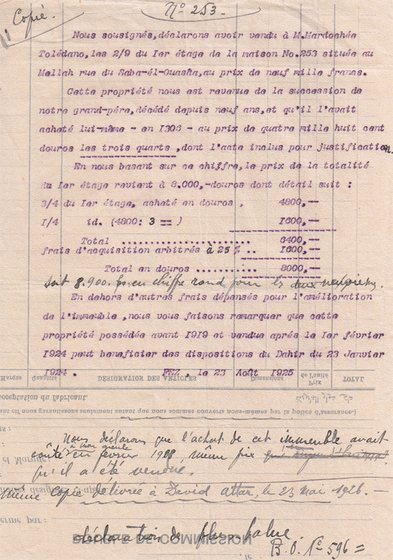 Copie.
N° 253.
Nous sousignés, déclarons avoir vendu à M.Mardochée
Tolédano, les 2/9 du 1er étage de la maison No.253 située au
Mellah rue du Saba-él-Ouasha, au prix de neuf mille francs.
Cette propriété nous est revenue de la succession de
notre grand-pére, décédé depuis neuf ans, et qu'il l'avait
acheté lui-même - en 1306 - au prix de quatre mille huit cent
douros les trois quarts, dont l'acte inclus pour justification.
En nous basant sur ce chiffre, le prix de la totalité
du 1er étage revient à 8.000,-douros dont détail suit :
3/4 du 1er étage, acheté en douros , 4800,—
1/4 id. (4800: 3 == ) 1600,—
Total ........................ 6400,—
frais d'acquisition arbitrés à 25 % .. 1600,—
Total en douros ........... 8000,—
soit 8.900. en chiffre rond pour les
En dehors d'autres frais dépensés pour l'amélioration
de l'immeuble, nous vous faisons remarquer que cette
propriété possédée avant 1919 et vendue après le 1er février
1924 peut beneficier des dispositions du Dahir du 23 Janvier
1924 . FEZ, le 23 Août 1925
DÉSIGNATION DES ARTICLES
TOTAL
Nous déclarons que l'achat de cet immeuble avait
coûté en février 1908 même prix
qu'il a été vendue.
même copie délivrée à David attar, le 23 mai 1926. —
déclaration de plus value
DE COMMISSION
B.O. N° 596 =